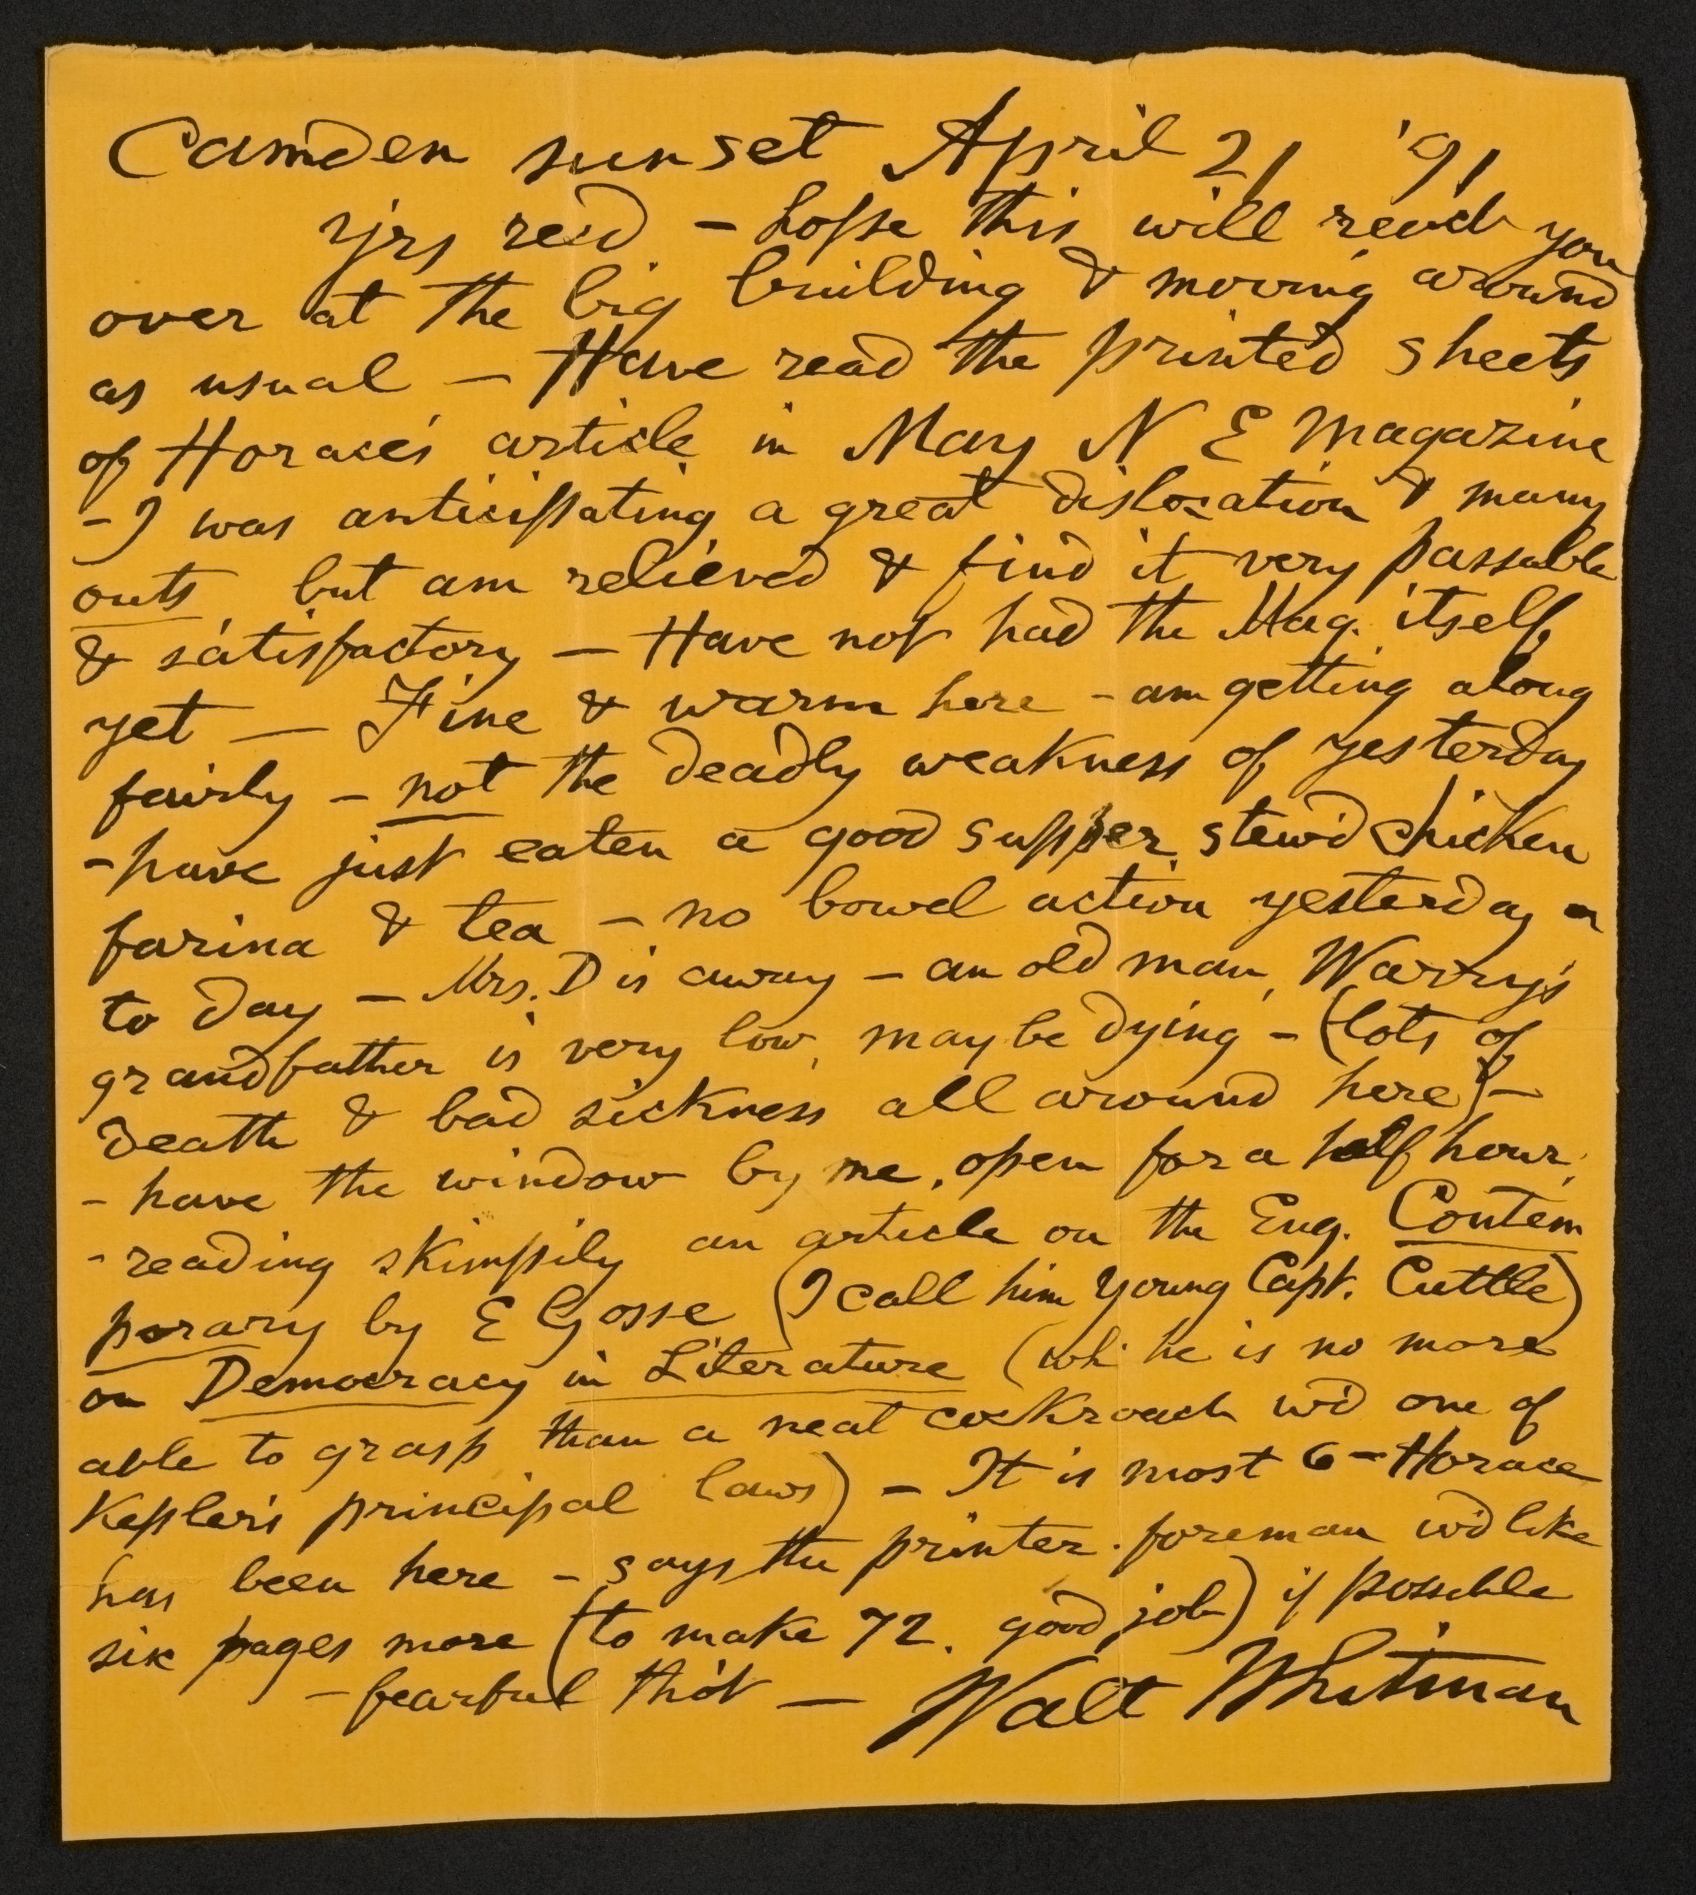 Camden sunset April 21 '91
y'rs rec'd – hope this will reach you
over at the big building & moving around
as usual – Have read the printed sheets
of Horace's article in May N E Magazine
– I was anticipating a great dislocation & many
outs, but am relieved & find it very passable
& satisfactory – Have not had the Mag. itself
yet – Fine & warm here – am getting along
fairly – not the deadly weakness of yesterday
– have just eaten a good supper, stew'd chicken
farina & tea – no bowel action yesterday or
to day – Mrs. D is away – an old man, Warry's
grandfather is very low, may be dying – (lots of
death & bad sickness all around here) –
– have the window by me, open for a half hour,
– reading skimpily an article on the Eng. Contem
porary by E Gosse (I call him young Capt. Cuttle)
on Democracy in Literature (wh' he is no more
able to grasp than a neat cockroach w'd one of
Kepler's principal laws) – It is most 6 – Horace
has been here – says the printer-foreman w'd like
six pages more (to make 72, good job) if possible
– fearful tho't – Walt Whitman